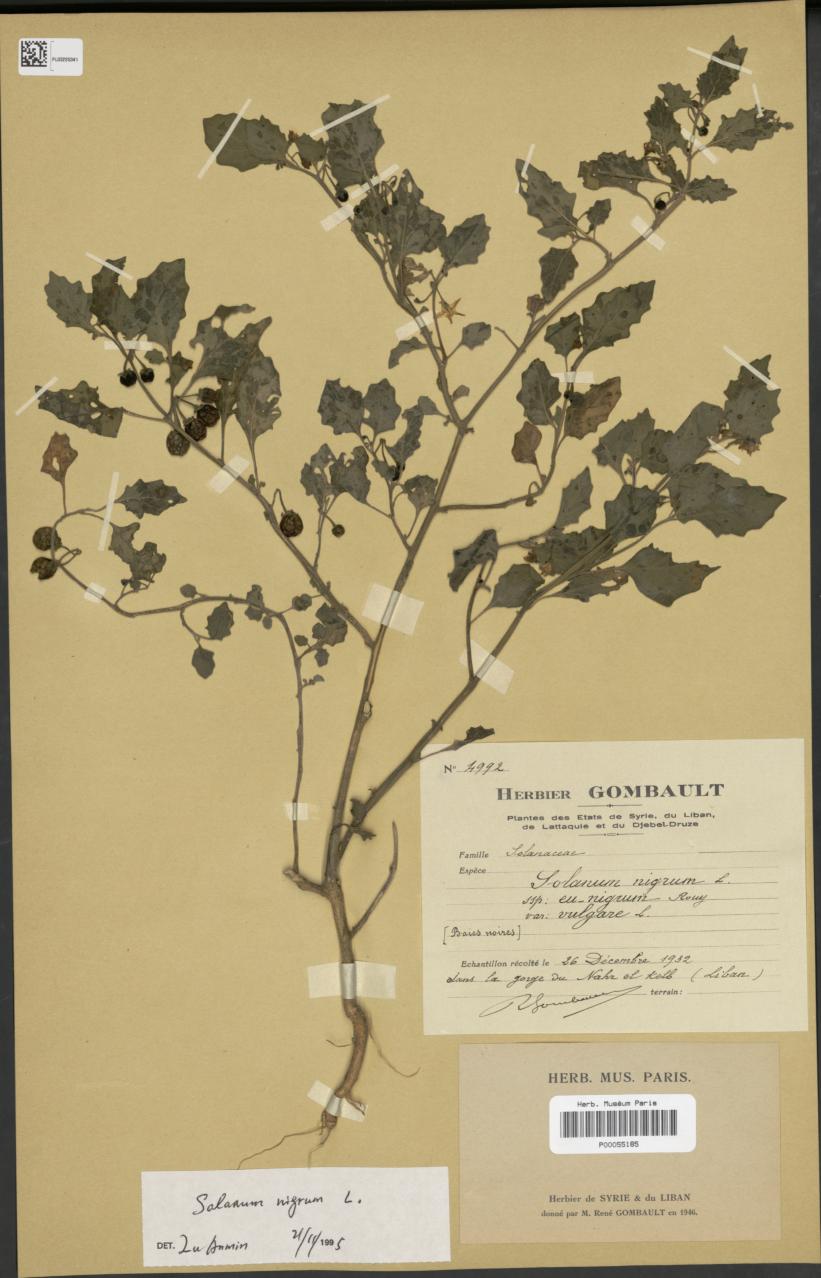 N° 4992
HERBIER GOMBAULT
Plantes des Etats de Syrie, du Liban,
de Lattaquie et du Djebel-Druze
Famille Solanaceae
Espèce
Solanum nigrum L.
ssp: eu-nigrum Rouy
var: vulgare L.
[Baies noires]
Echantillon récolté le 26 Décembre 1932
dans la gorge du Nahr el Kelb (Liban)
RGombault terrain:
HERB. MUS. PARIS.
Herb. Muséum Paris
P00055185
Herbier de SYRIE & du LIBAN
donné par M. René GOMBAULT en 1946.
Solanum nigrum L.
DET. 1995